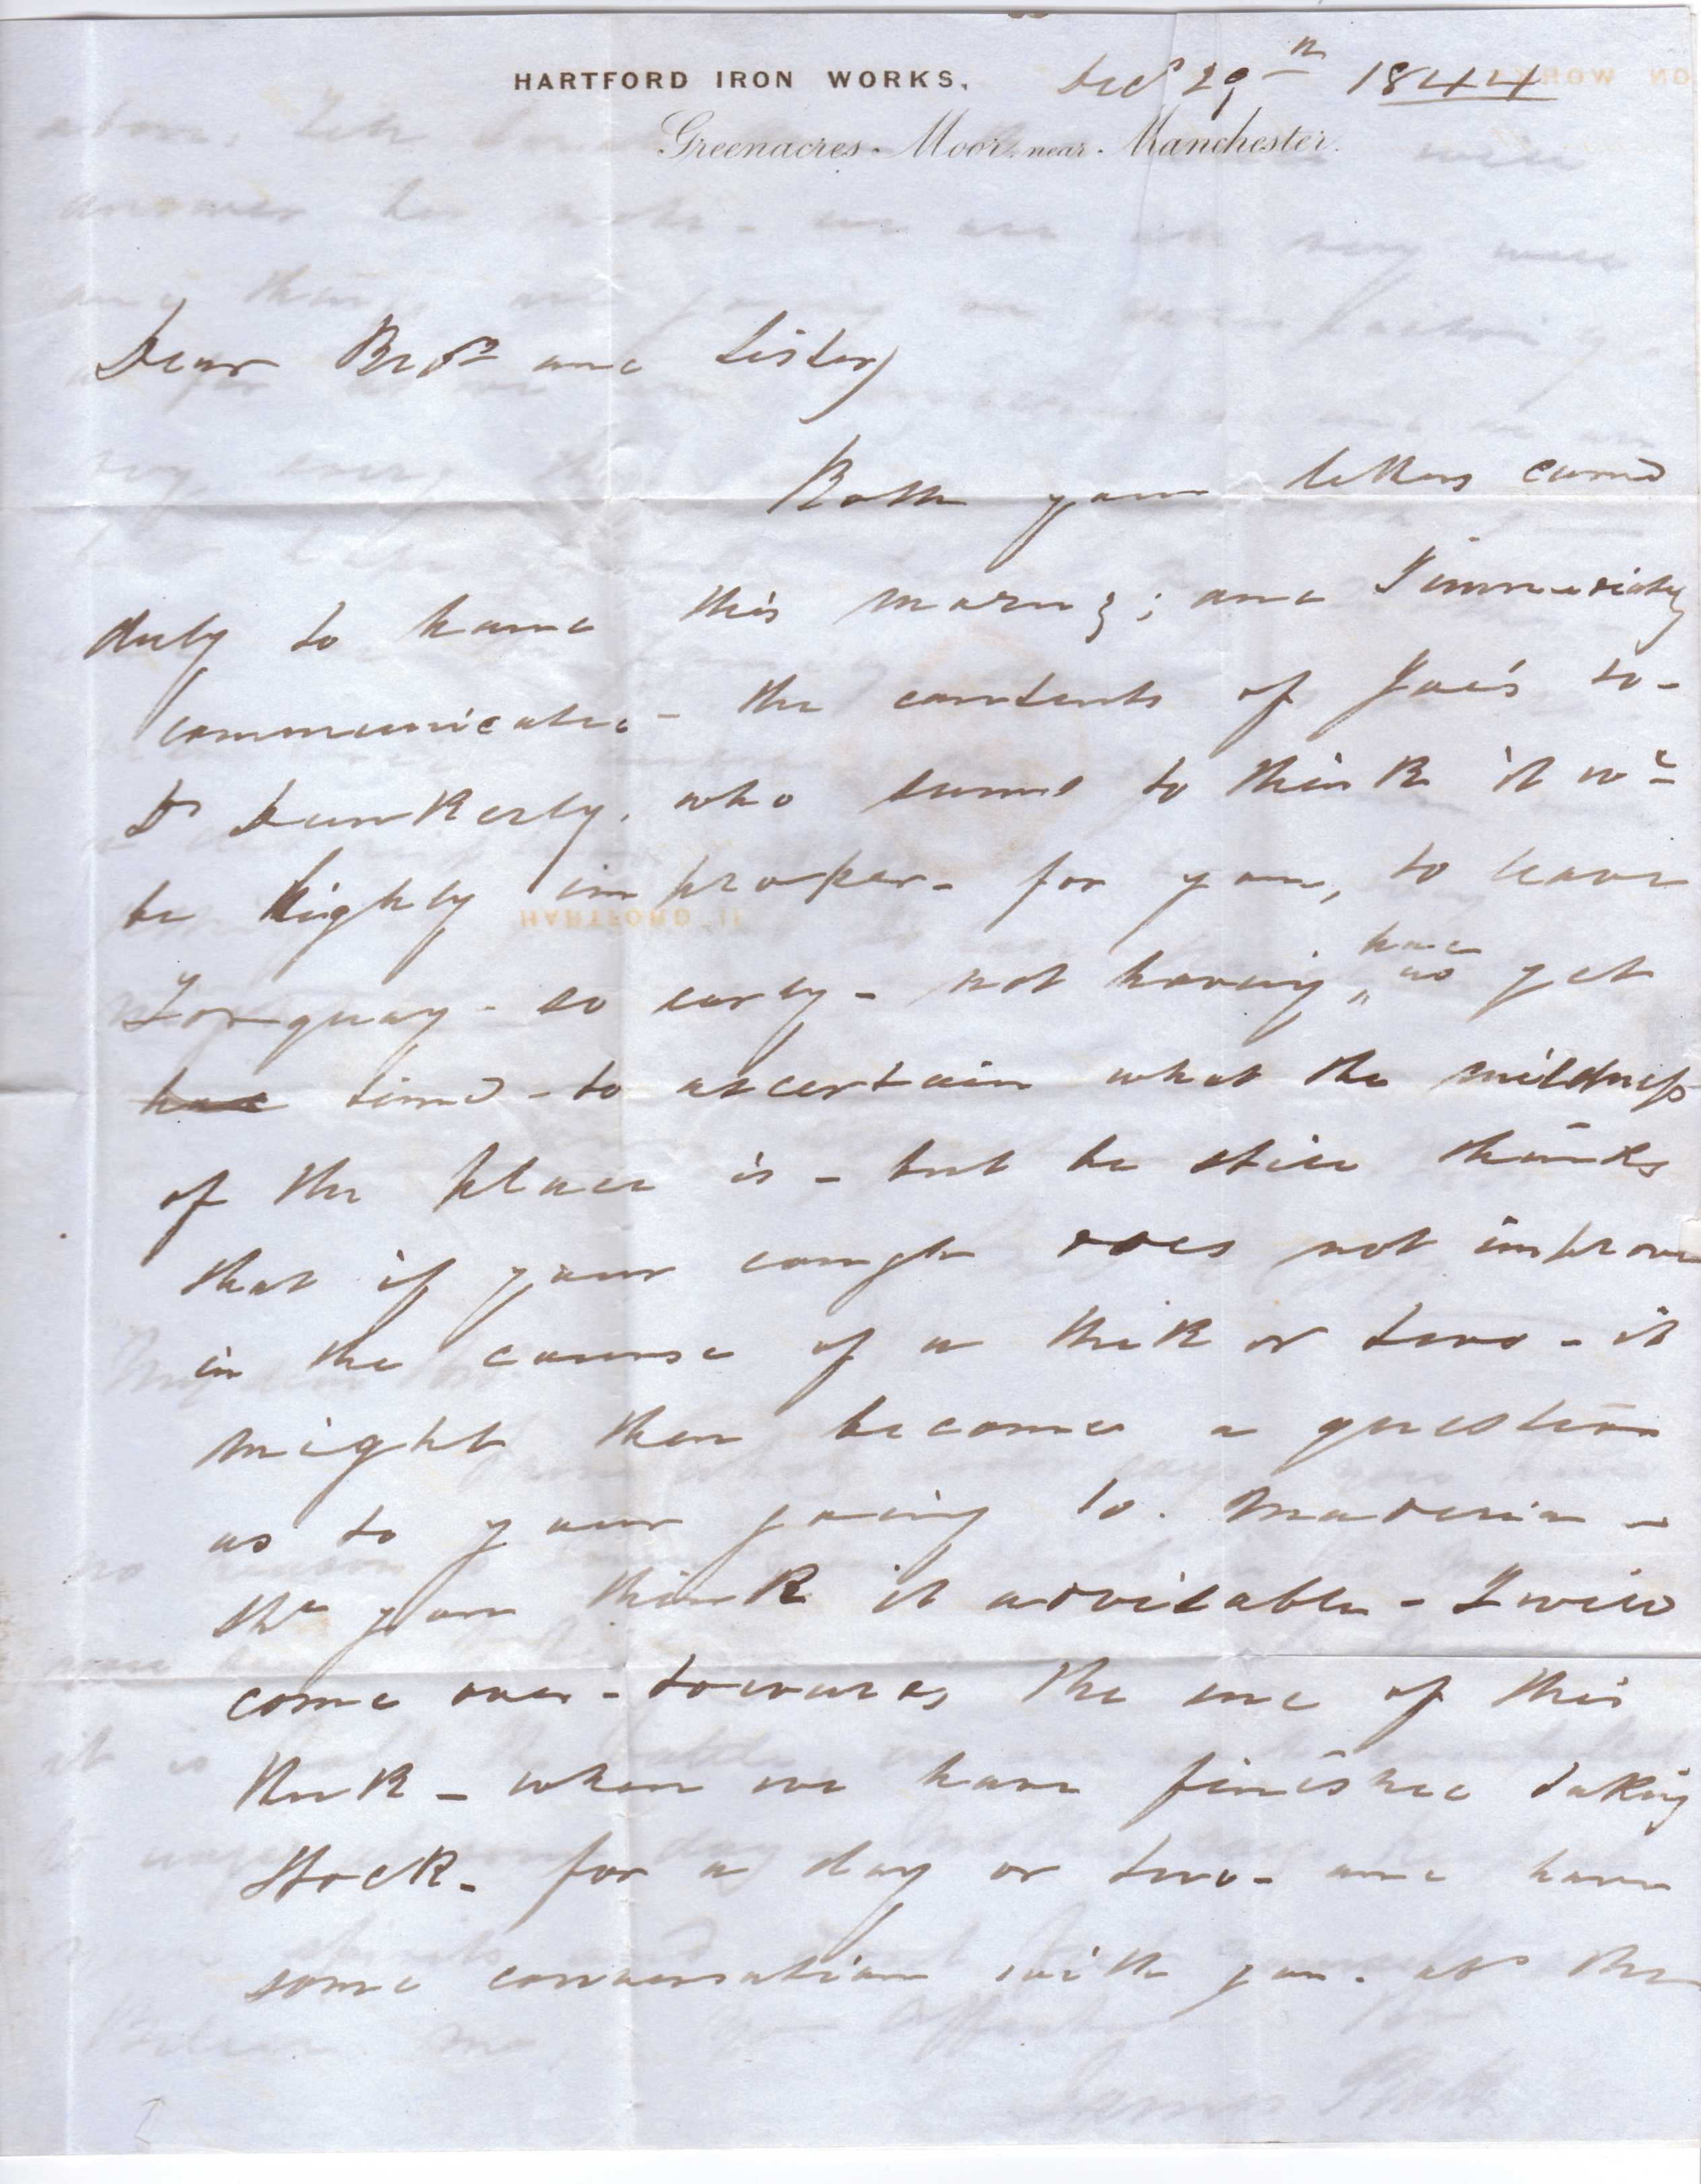 HARTFORD IRON WORKS, Decr 29th 1844
Greenacres-Moor, near Manchester.
Dear Bror and Sister,
Both your letters came
duly to hand this morng; and I immediately
communicated - the contents of Joe's to-
Dr Dunkerly, who seems to think it wd
be highly improper - for you, to leave
Torquay - so early - not having had as yet
had time - to ascertain what the mildness
of the place is - but he still thinks
that if your cough does not improve
in the course of a week or two - it
might then become a question
as to your going to Maderia -
shd you think it advisable - I will
come over - towards the end of this
week - when we have finished taking
stock - for a day or two - and have
some conversation with you. at the